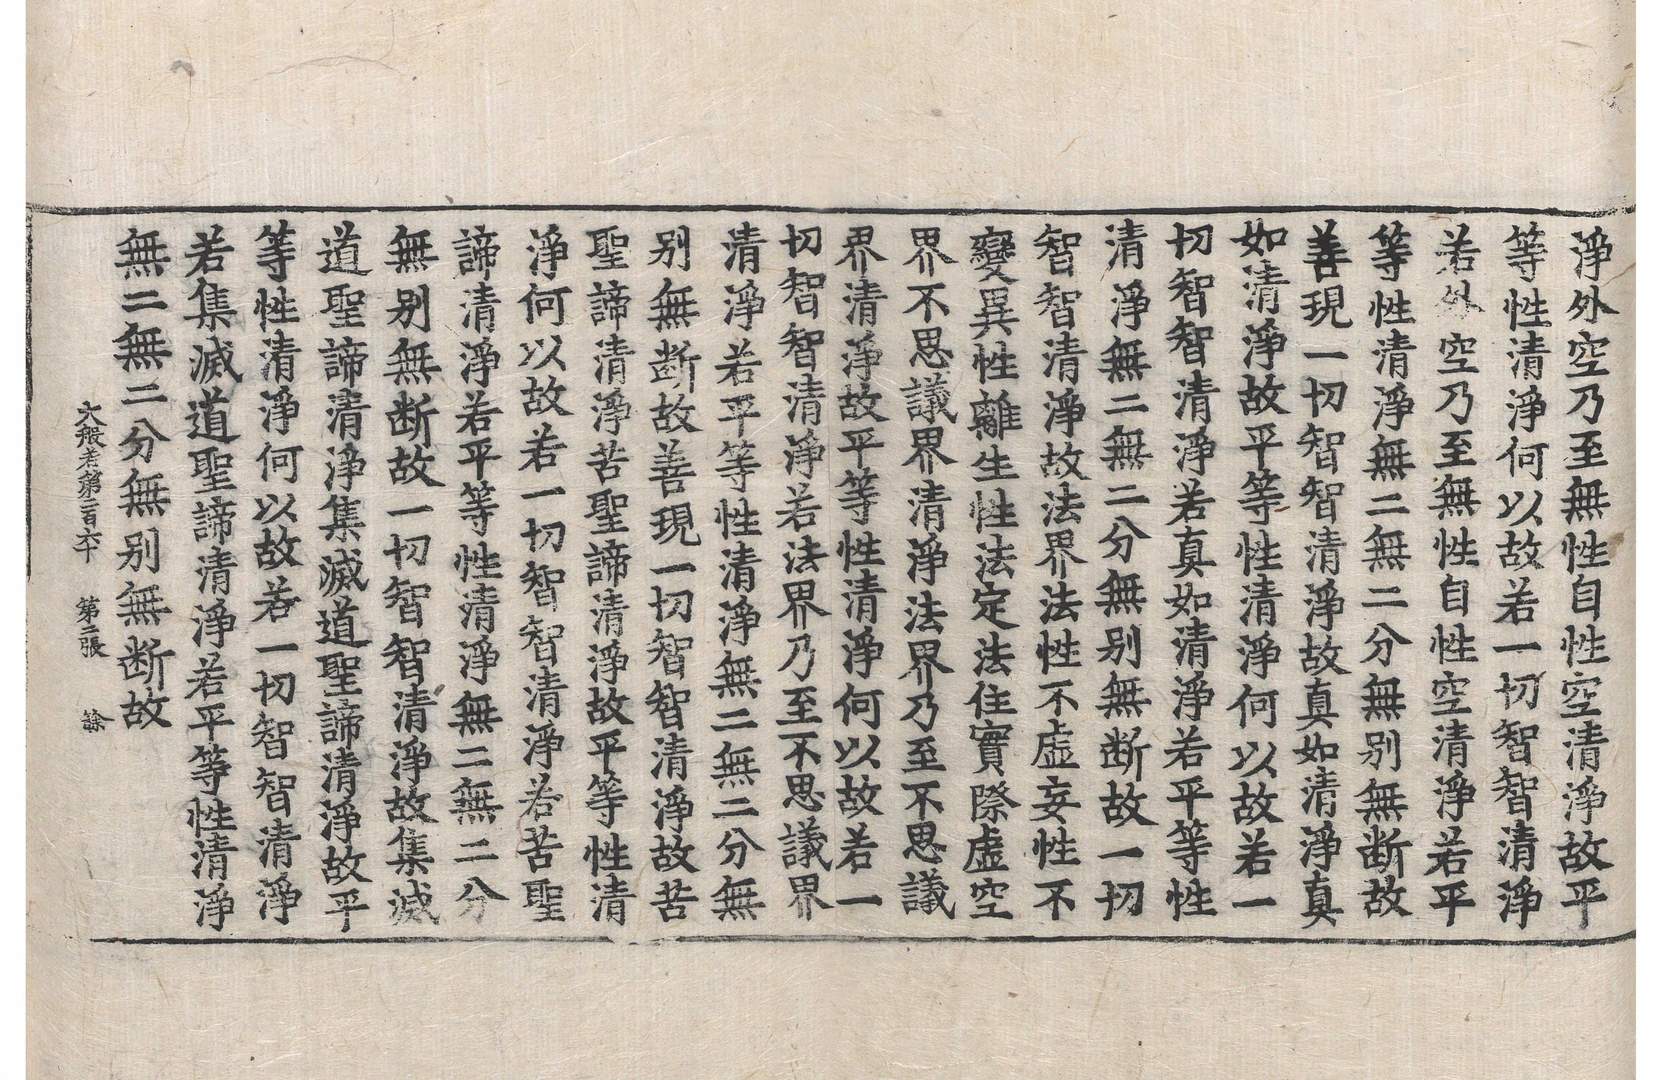 淨外空乃至無性自性空清淨故平
等性清淨何以故若一切智智清淨
若外空乃至無性自性空清淨若平
等性清淨無二無二分無别無断故
善現一切智智清淨故真如清淨真
如清淨故平等性清淨何以故若一
切智智清淨若真如清淨若平等性
清淨無二無二分無别無断故一切
智智清淨故法界法性不虛妄性不
變異性離生性法定法住實際虛空
界不思議界清淨法界乃至不思議
界清淨故平等性清淨何以故若一
切智智清淨若法界乃至不思議界
清淨若平等性清淨無二無二分無
别無断故善現一切智智清淨故苦
聖諦清淨苦聖諦清淨故平等性清
淨何以故若一切智智清淨若苦聖
諦清淨若平等性清淨無二無二分
無别無断故一切智智清淨故集滅
道聖諦清淨集滅道聖諦清淨故平
等性清淨何以故若一切智智清淨
若集滅道聖諦清淨若平等性清淨
無二無二分無别無断故
大般若第二百六十 第二張